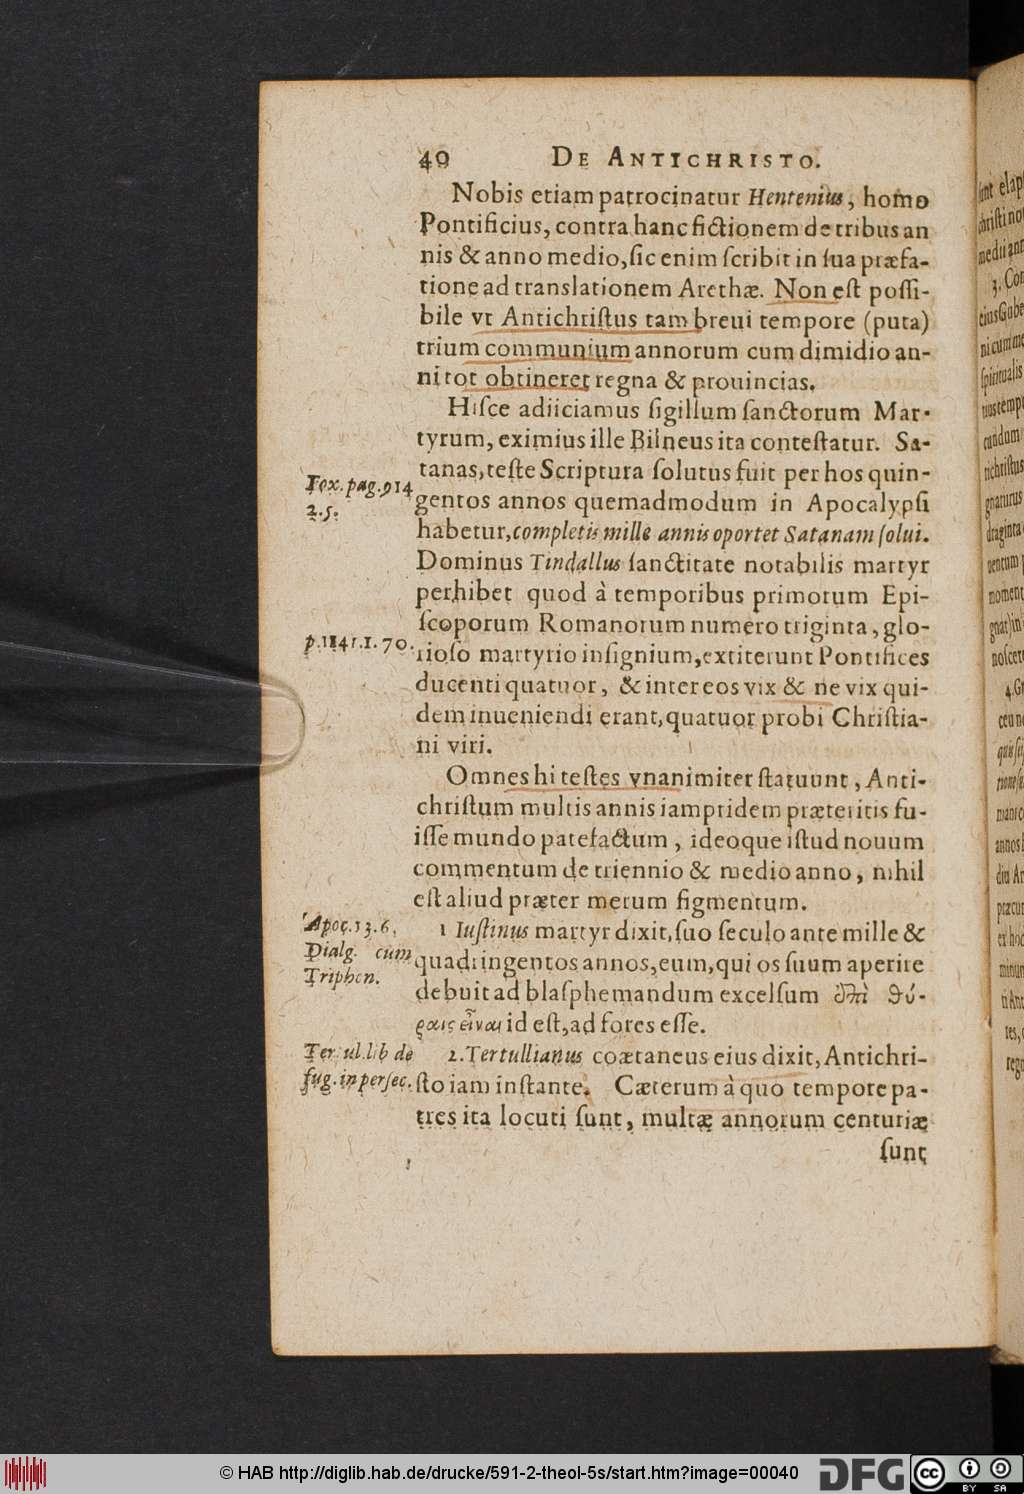 40 DE ANTICHRISTO.
Nobis etiam patrocinatur Hentenius, homo
Pontificius, contra hanc fictionem de tribus an
nis & anno medio, ſic enim ſcribit in ſua præfa-
tione ad translationem Arethæ. Non eſt poſſi-
bile vt Antichriſtus tam breui tempore (puta)
trium communium annorum cum dimidio an-
ni tot obtineret regna & prouincias.
Hiſce adiiciamus ſigillum ſanctorum Mar-
tyrum, eximius ille Bilneus ita conteſtatur. Sa-
tanas, teſte Scriptura ſolutus fuit per hos quin-
Fox. pag. 914
gentos annos quemadmodum in Apocalypſi
2. 5.
habetur, completis mille annis oportet Satanam ſolui.
Dominus Tindallus ſanctitate notabilis martyr
perhibet quod à temporibus primorum Epi-
ſcoporum Romanorum numero triginta, glo-
p. 1141. 1. 70.
rioſo martyrio inſignium, extiterunt Pontifices
ducenti quatuor, & inter eos vix & ne vix qui-
dem inueniendi erant, quatuor probi Chriſtia-
ni viri.
Omnes hi teſtes vnanimiter ſtatuunt, Anti-
chriſtum multis annis iampridem præteritis fu-
iſſe mundo patefactum, ideoque iſtud nouum
commentum de triennio & medio anno, nihil
eſt aliud præter merum figmentum.
Apoc. 13. 6.
1 Iuſtinus martyr dixit, ſuo ſeculo ante mille &
Dialg. cum
quadringentos annos, eum, qui os ſuum aperire
Triphon.
debuit ad blaſphemandum excelſum ἐπὶ θύ-
ραις εἶναι id eſt, ad fores eſſe.
Tertul. lib de
2. Tertullianus coætaneus eius dixit, Antichri-
fug. in perſec.
ſto iam inſtante. Cæterum à quo tempore pa-
tres ita locuti ſunt, multæ annorum centuriæ
ſunt
© HAB http://diglib.hab.de/drucke/591-2-theol-5s/start.htm?image=00040
DFG
cc BY SA